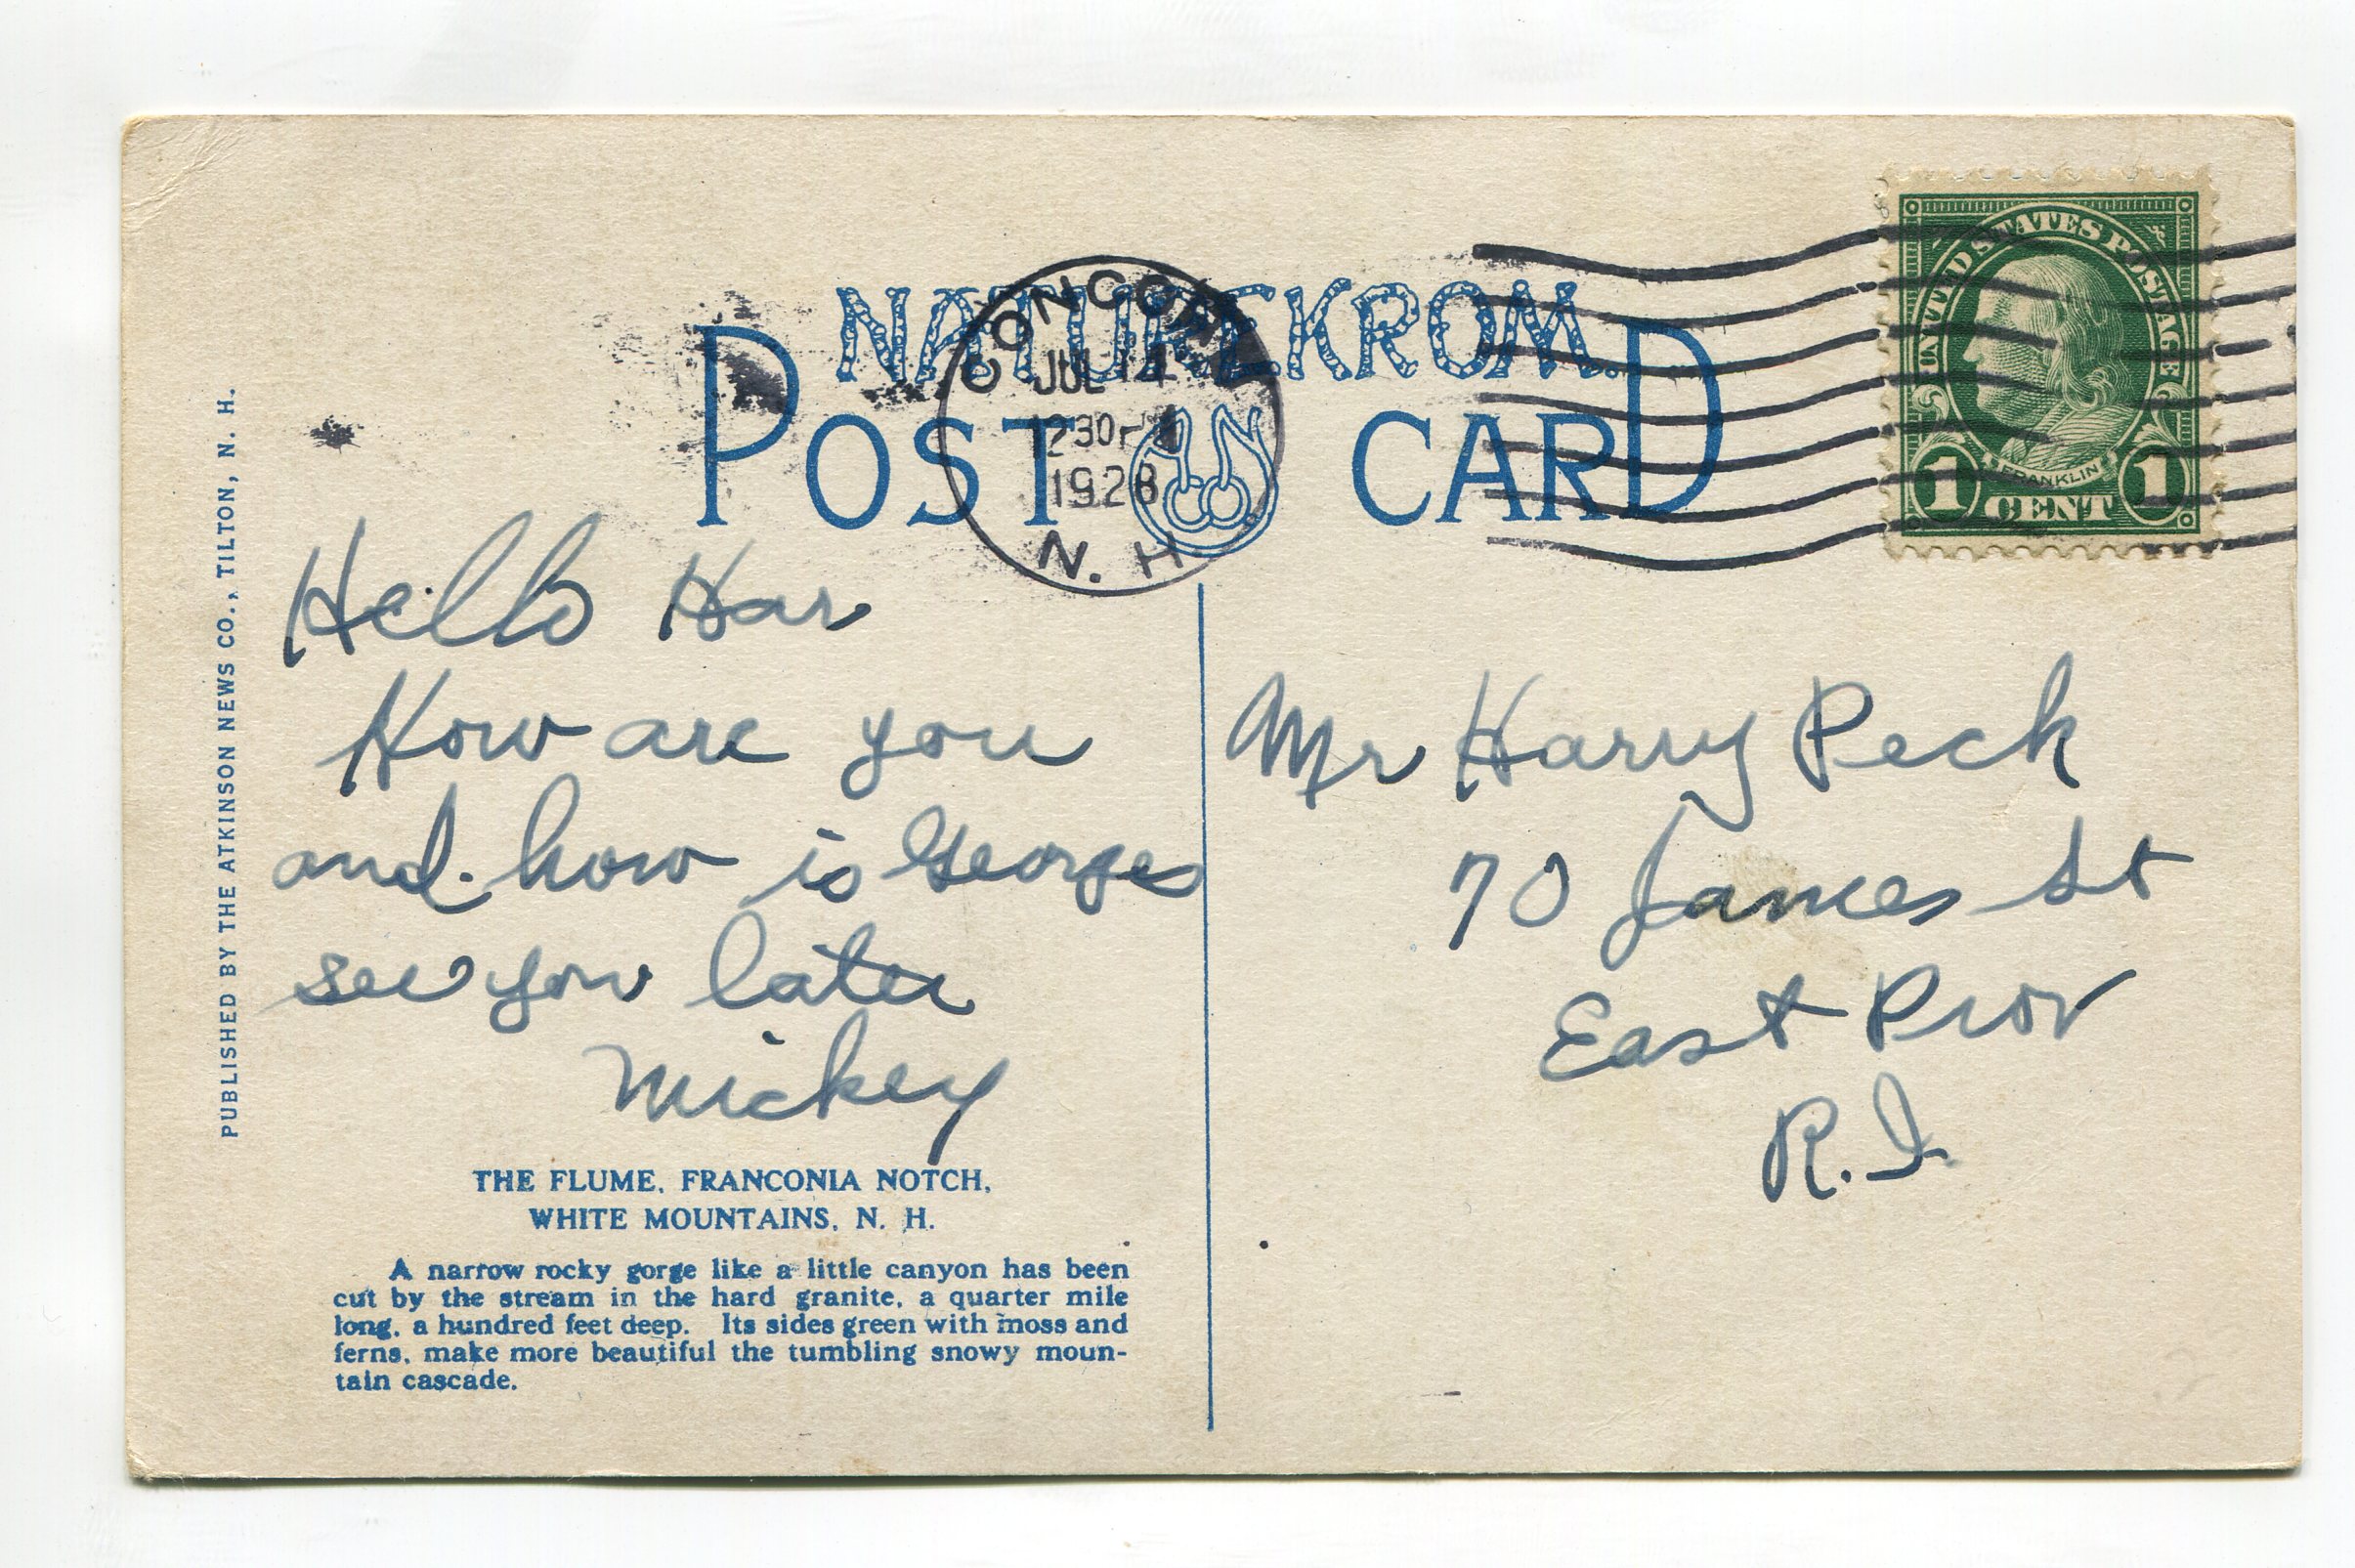 NATUREKROM.
POST CARD
CONCORD
JUL 14
1230 P
1928
N. H.
UNITED STATES POSTAGE
FRANKLIN
1 CENT 1
PUBLISHED BY THE ATKINSON NEWS CO., TILTON, N. H.
Hello Har
How are you
and how is Georges
see you later
Mickey
THE FLUME, FRANCONIA NOTCH,
WHITE MOUNTAINS, N. H.
A narrow rocky gorge like a little canyon has been
cut by the stream in the hard granite, a quarter mile
long, a hundred feet deep. Its sides green with moss and
ferns, make more beautiful the tumbling snowy moun-
tain cascade.
Mr Harry Peck
70 James St
East Prov
R.I.